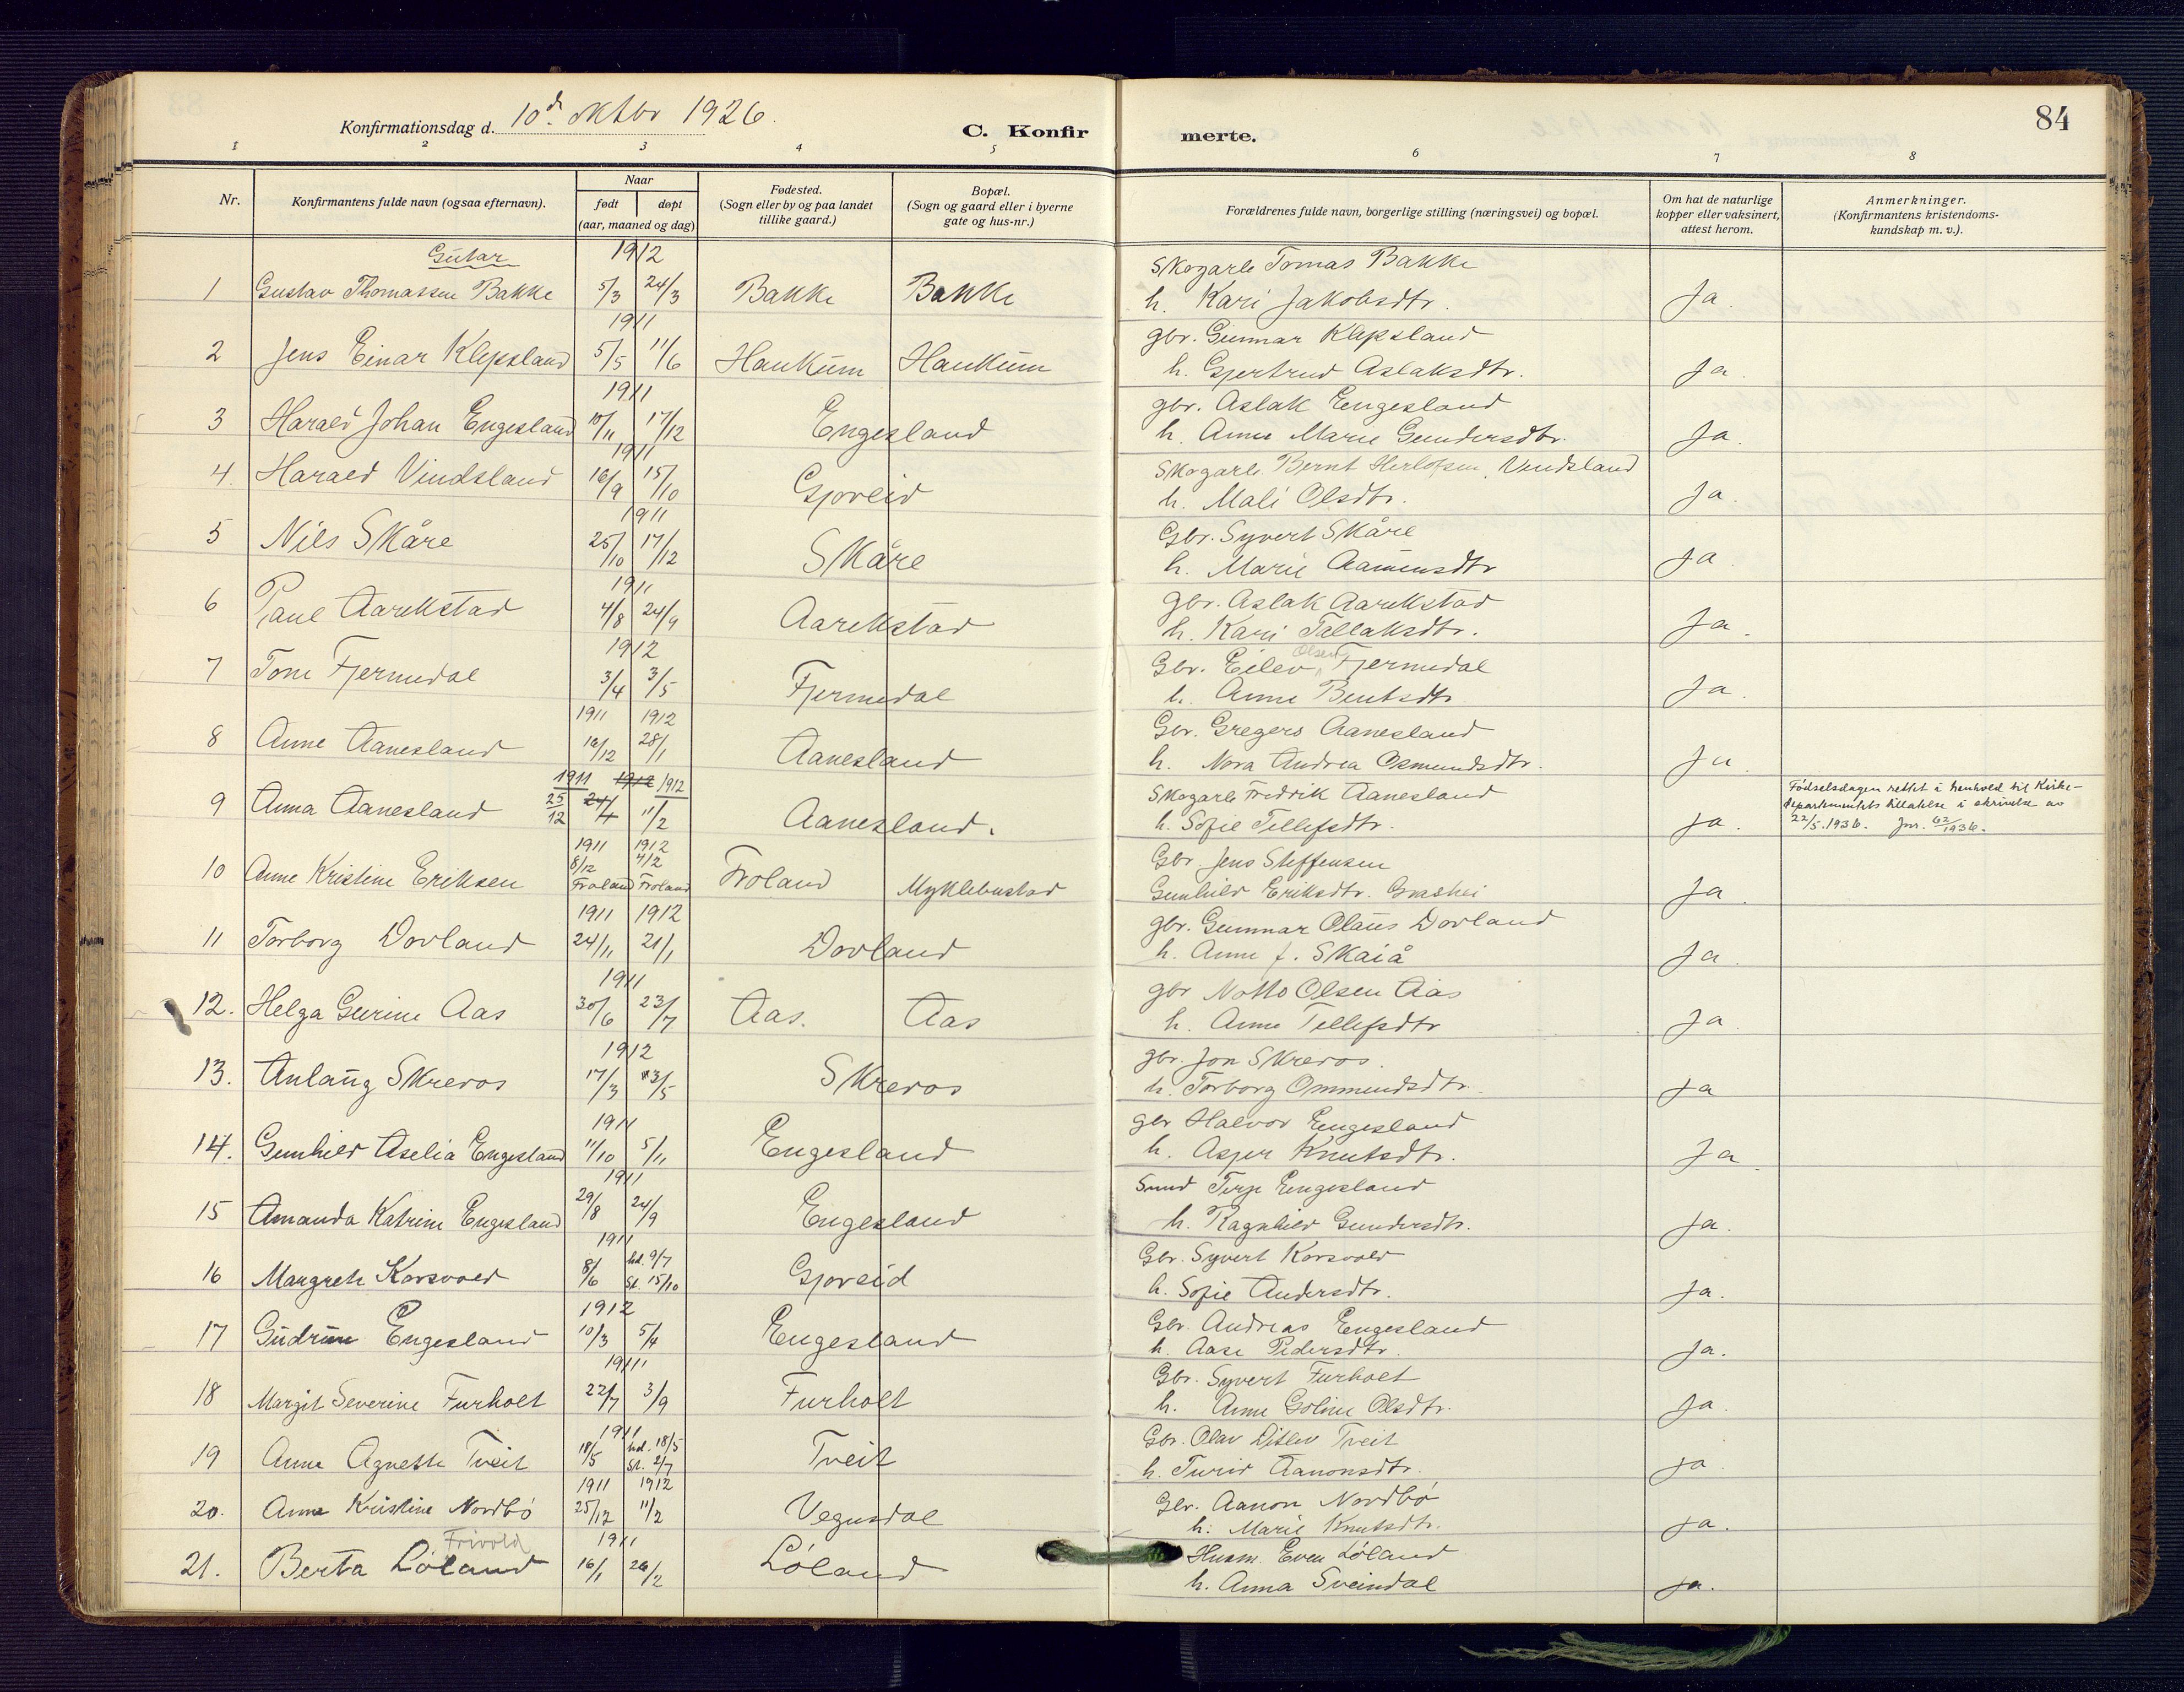 84
Konfirmationsdag d. 10de oktbr 1926.
C. Konfirmerte.
1 2 3 4 5 6 7 8
Nr.
Konfirmantens fulde navn (ogsaa efternavn).
Naar
født døpt
(aar, maaned og dag)
Fødested.
(Sogn eller by og paa landet
tillike gaard.)
Bopæl.
(Sogn og gaard eller i byerne
gate og hus-nr.)
Forældrenes fulde navn, borgerlige stilling (næringsvei) og bopæl.
Om hat de naturlige
kopper eller vaksinert,
attest herom.
Anmerkninger.
(Konfirmantens kristendoms-
kundskap m. v.).
Gutar 1912 Skogarb Tomas Bakke
1 Gustav Thomassen Bakke 5/3 24/3 Bakke Bakke h. Kari Jakobsdtr. Ja.
1911 gbr. Gunnar Klepsland
2 Jens Einar Klepsland 5/5 11/6 Haukum Haukum h. Gjertrud Aslaksdtr. Ja.
1911 gbr. Aslak Engesland
3 Harald Johan Engesland 10/11 17/12 Engesland h. Anne Marie Gundersdtr. Ja.
1911 Skogarb. Bernt Herlofsen Vindsland
4. Harald Vindsland 16/9 15/10 Gjoveid h. Mali Olsdtr. Ja.
1911 Gbr. Syvert Skåre
5 Nils Skåre 25/10 17/12 Skåre h. Marie Aamunsdtr Ja
1911 gbr. Aslak Aarekstad
6 Paul Aarekstad 4/8 24/9 Aarekstad h. Kari Tallaksdtr. Ja.
1912 Gbr. Eilev Olsen Fjermedal
7 Tom Fjermedal 3/4 3/5 Fjermedal h. Anne Bentsdtr Ja.
1911 1912 Gbr. Gregers Aanesland
8 Anne Aanesland 16/12 28/1 Aanesland h. Nora Andrea Osmundsdtr. Ja.
1911 1912 1912 Skogarb Fredrik Aanesland
9 Anna Aanesland 25/12 24/4 11/2 Aanesland. h. Sofie Tellefsdtr. Ja.
Fødselsdagen rettet i henhold til Kirke-
departementets tillatelse i skrivelse av
22/5. 1936. Jnr. 62/1936.
1911 1912 Gbr. Jens Steffensen
10 Anne Kristine Eriksen 8/12 Froland 4/2 Froland Froland Myklebustad Gunhild Eriksdtr. Ja.
1911 1912 gbr. Gunnar Olaus Dovland
11 Torborg Dovland 24/11 21/1 Dovland h. Anne f. Skaiå Ja.
1911 gbr Notto Olsen Aas
12. Helga Gurine Aas 30/6 23/7 Aas. Aas h. Anne Tellefsdtr Ja.
1912 gbr. Jon Skreros.
13. Anlaug Skreros 17/3 3/5 Skreros h. Torborg Ommundsdtr. Ja
1911 gbr Halvor Engesland
14. Gunhild Aselia Engesland 11/10 5/11 Engesland h. Asper Knutsdtr. Ja.
1911 Smed Terje Engesland
15 Amanda Katrine Engesland 29/8 24/9 Engesland h. Ragnhild Gundersdtr. Ja.
1911 Gbr. Syvert Korsvold
16 Margrete Korsvold 8/6 hd. 9/7 St. 15/10 Gjoveid h. Sofie Andersdtr. Ja.
1912 Gbr. Andreas Engesland
17 Gudrun Engesland 10/3 5/4 Engesland h. Aase Pedersdtr. Ja.
1911 Gbr. Syvert Furholt
18 Margit Severine Furholt 22/7 3/9 Furholt h. Anne Goline Olsdtr. Ja.
1911 Gbr. Olav Ditlev Tveit
19 Anna Agnette Tveit 18/5 hd. 18/5 St. 2/7 Tveit h. Turid Aanonsdtr. Ja.
1911 1912 Gbr. Aanon Nordbø
20. Anna Kristine Nordbø 25/12 11/2 Vegusdal h. Marie Knutsdtr. Ja.
Frivold 1911 Husm. Even Løland
21. Berta Løland 16/1 26/2 Løland h. Anna Sveindal Ja.